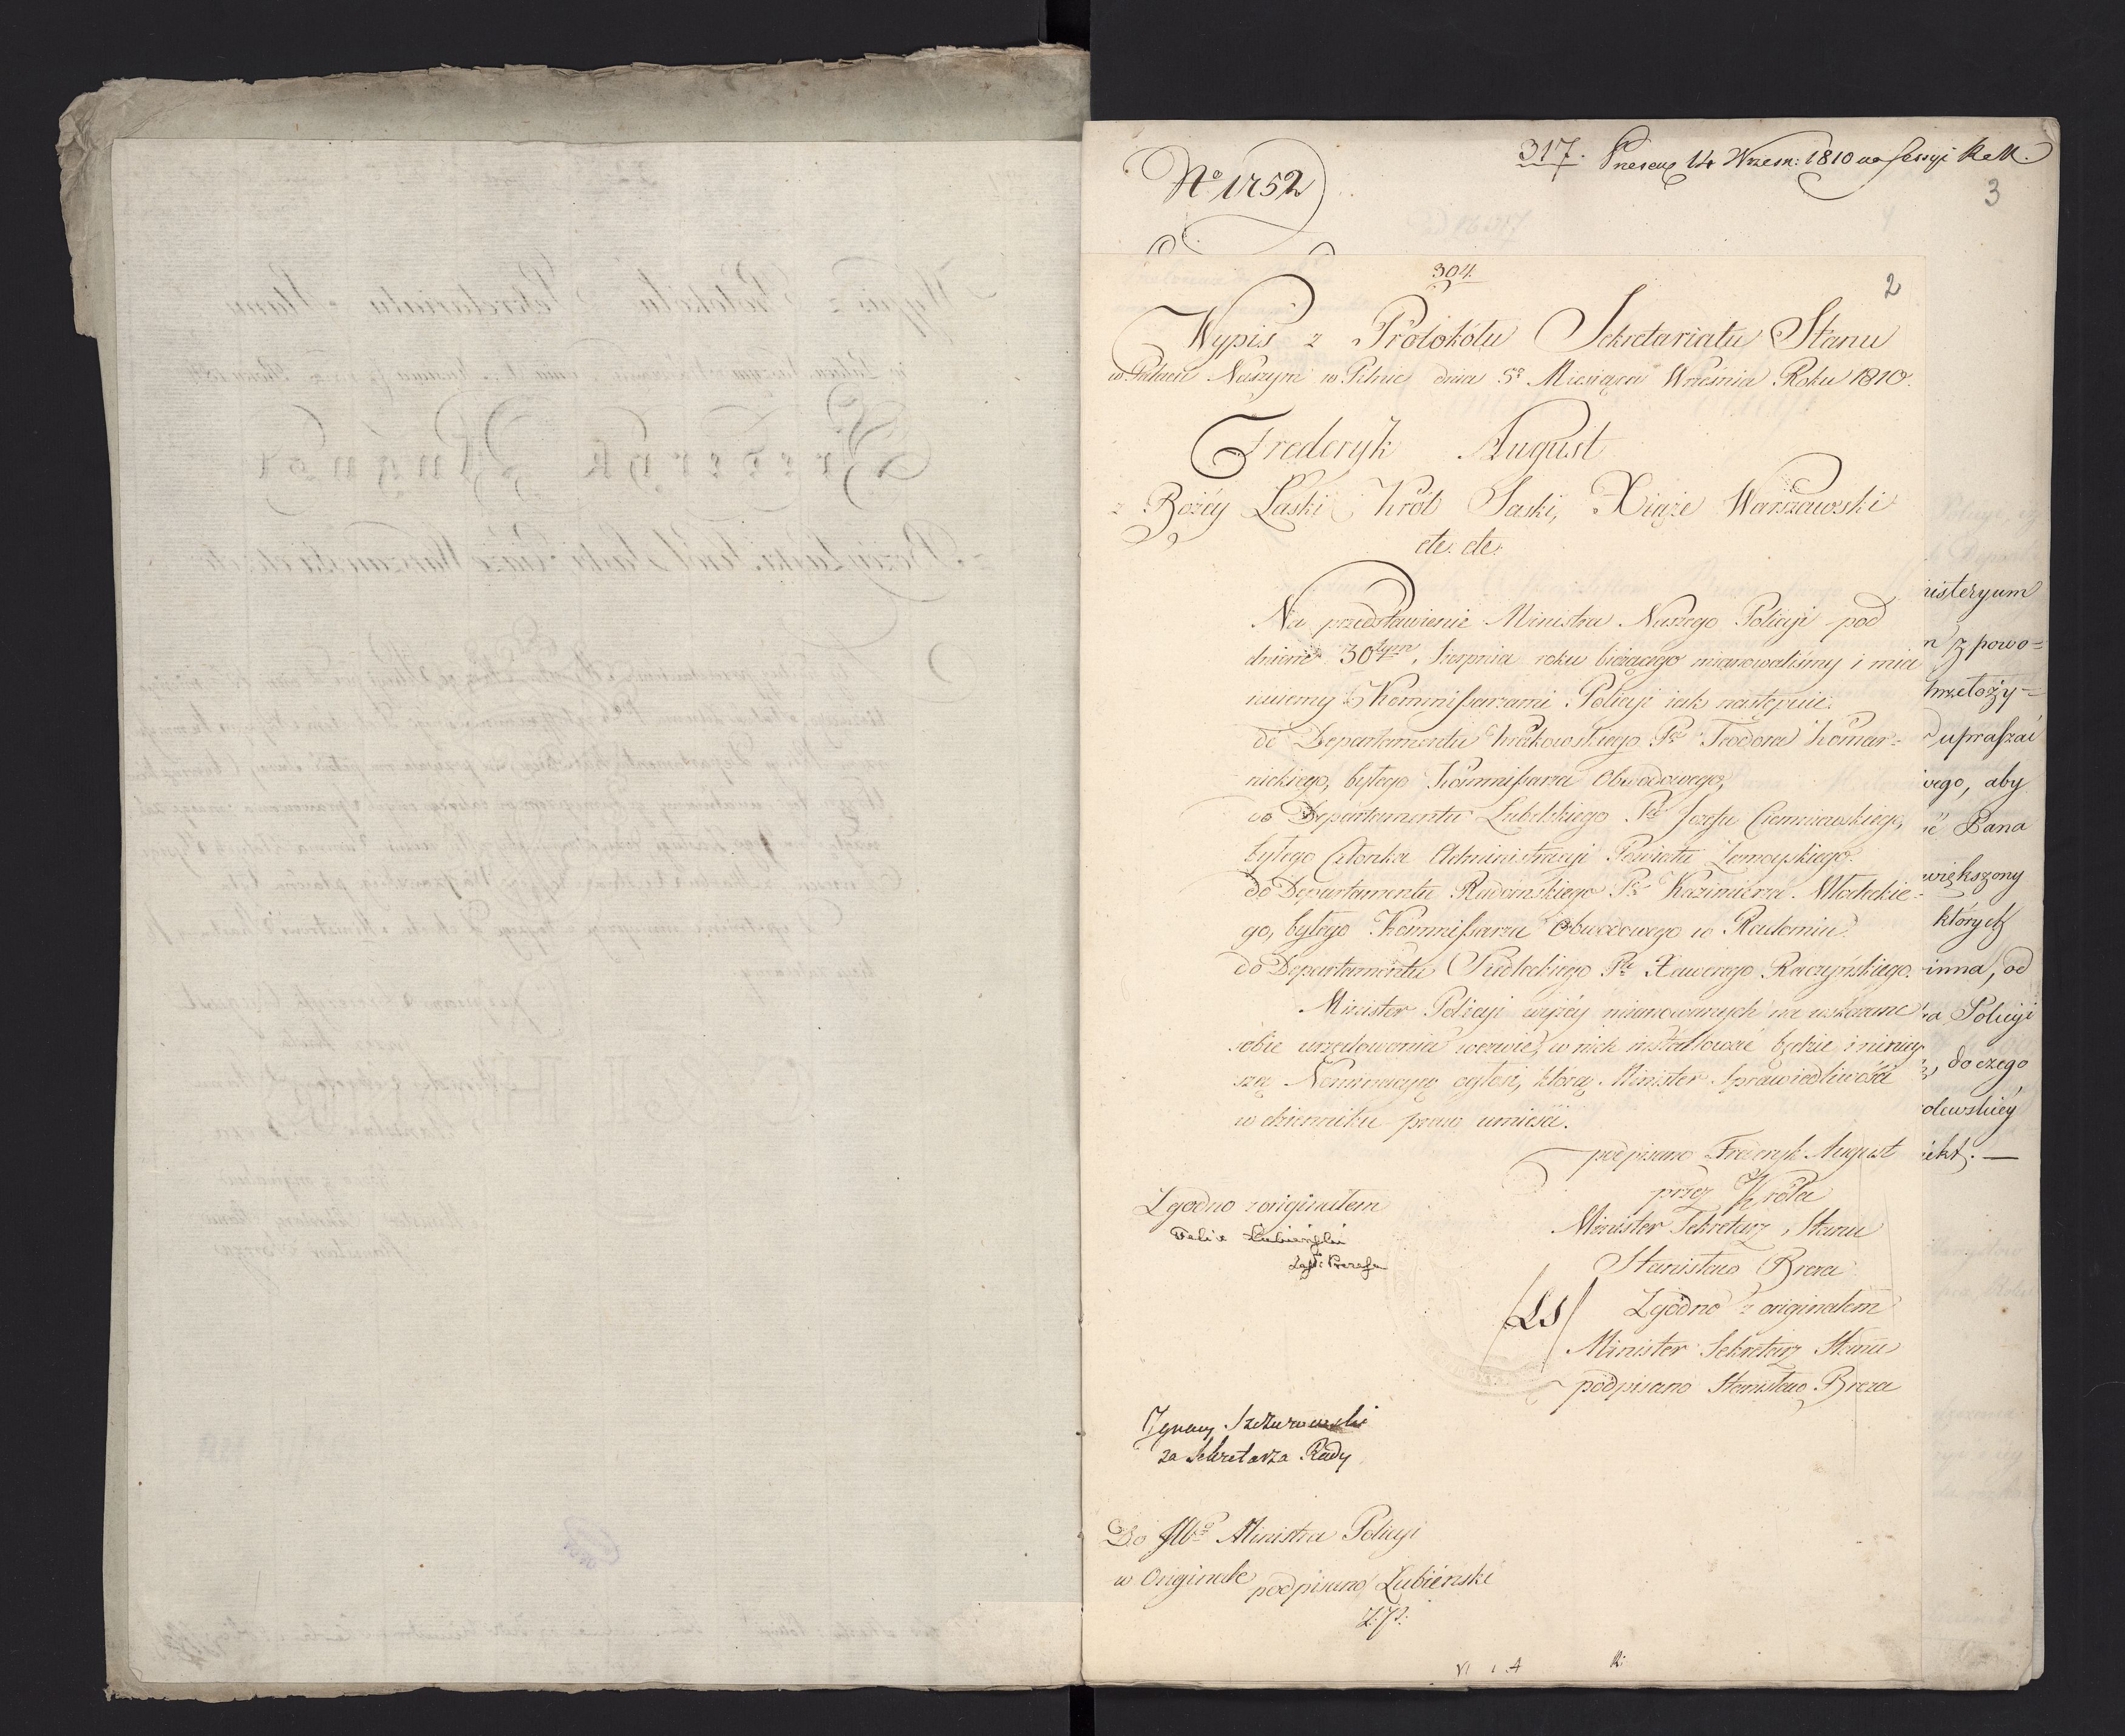 317. Praesent 14 Wrzesn: 1810 na sessyi R.M.
3
No 1752
304.
2
Wypis z Protokółu Sekretariatu Stanu
w Pałacu Naszym w Pilnic dnia 5o Miesiąca Września Roku 1810.
Frederyk August
z Bożéy Łaski Król Saski, Xiąże Warszawski
etc. etc.
Na przedstawienie Ministra Naszego Policyi pod
dniem 30tym Sierpnia roku bieżącego mianowaliśmy i mia
nuiemy Kommissarzami Policyi iak następuie.
do Departamentu Krakowskiego Pa Teodora Komar-
nickiego, byłego Kommissarza Obwodowego,
do Departamentu Lubelskiego Pa Jozefa Ciemniewskiego,
byłego Członka Administracyi Powiatu Zamoyskiego.
do Departamentu Radomskiego Pa Kazimierza Młodeckie-
go, byłego Kommissarza Obwodowego w Radomiu.
do Departamentu Siedleckiego Pa Xawerego Raczyńskiego.
Minister Policyi wyżéy mianowanych na wskazane
sobie urzędowania wezwie, w nich installować będzie i niniey
szą Nominacyą ogłosi, którą Minister Sprawiedliwości
w dzienniku praw umieści.
podpisano Frederyk August
przez Króla
Minister Sekretarz Stanu
Stanisław Breza
Zgodno z originałem
Felix Łubieński
Zast: Prezesa
(LS) Zgodno z originałem
Minister Sekretarz Stanu
podpisano Stanisław Breza
Ignacy
za Sekretarza Rady
Do JWo Ministra Policyi
w Originale podpisano Łubieński
Z.P.
nisteryum
z powo-
upraszać
aby
Pana
większony
których
inna, od
Policyi
do czego